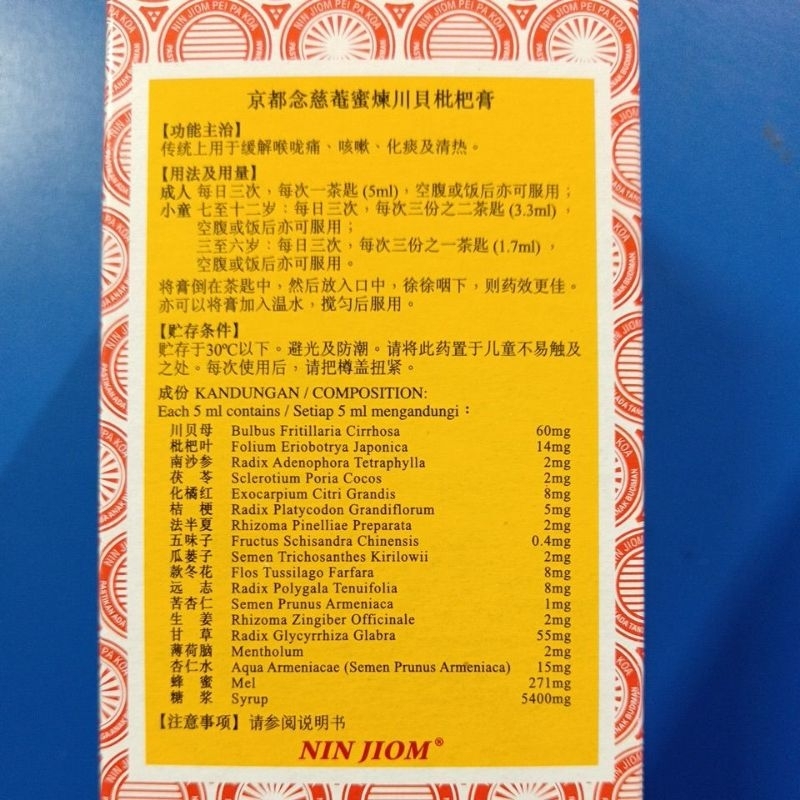 京都念慈菴蜜煉川貝枇杷膏
【功能主治】
传统上用于缓解喉咙痛、咳嗽、化痰及清热。
【用法及用量】
成人 每日三次，每次一茶匙 (5ml)，空腹或饭后亦可服用；
小童 七至十二岁：每日三次，每次三份之二茶匙 (3.3ml)，
空腹或饭后亦可服用；
三至六岁：每日三次，每次三份之一茶匙 (1.7ml)，
空腹或饭后亦可服用。
将膏倒在茶匙中，然后放入口中，徐徐咽下，则药效更佳。
亦可以将膏加入温水，搅匀后服用。
【贮存条件】
贮存于30℃以下。避光及防潮。请将此药置于儿童不易触及
之处。每次使用后，请把樽盖扭紧。
成份 KANDUNGAN / COMPOSITION:
Each 5 ml contains / Setiap 5 ml mengandungi：
川贝母 Bulbus Fritillaria Cirrhosa 60mg
枇杷叶 Folium Eriobotrya Japonica 14mg
南沙参 Radix Adenophora Tetraphylla 2mg
茯苓 Sclerotium Poria Cocos 2mg
化橘红 Exocarpium Citri Grandis 8mg
桔梗 Radix Platycodon Grandiflorum 5mg
法半夏 Rhizoma Pinelliae Preparata 2mg
五味子 Fructus Schisandra Chinensis 0.4mg
瓜蒌子 Semen Trichosanthes Kirilowii 2mg
款冬花 Flos Tussilago Farfara 8mg
远志 Radix Polygala Tenuifolia 8mg
苦杏仁 Semen Prunus Armeniaca 1mg
生姜 Rhizoma Zingiber Officinale 2mg
甘草 Radix Glycyrrhiza Glabra 55mg
薄荷脑 Mentholum 2mg
杏仁水 Aqua Armeniacae (Semen Prunus Armeniaca) 15mg
蜂蜜 Mel 271mg
糖浆 Syrup 5400mg
【注意事项】请参阅说明书
NIN JIOM®